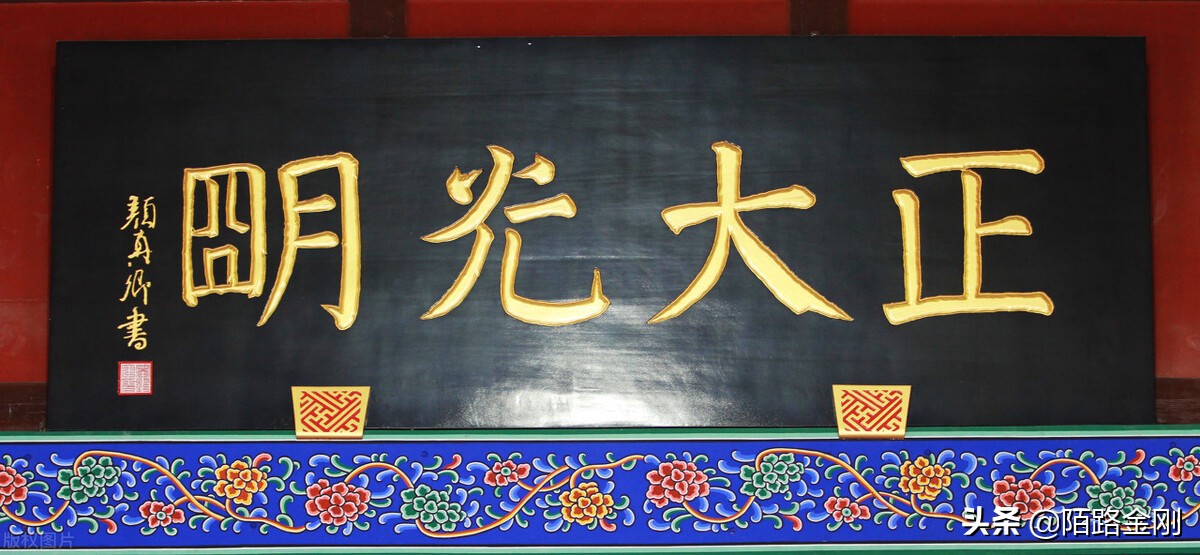 正大光朙
顏真卿書
版权图片
头条 @陌路金刚